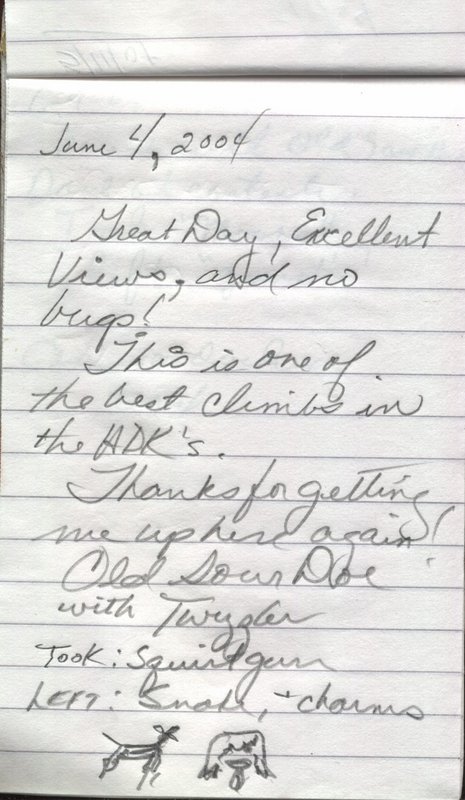 June 4, 2004
Great Day, Excellent
Views, and no
bugs!
This is one of
the best climbs in
the ADK's.
Thanks for getting
me up here again!
Old Sour Doe
with Twyzler
Took: Squirtgun
Left: Snake, + charms